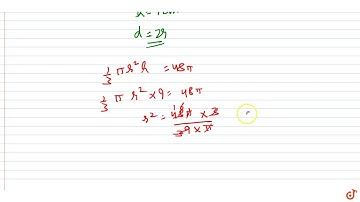 d = 2r
1/3 π r² h = 48π
1/3 π r² × 9 = 48π
r² = 48π × 3 / 9 × π